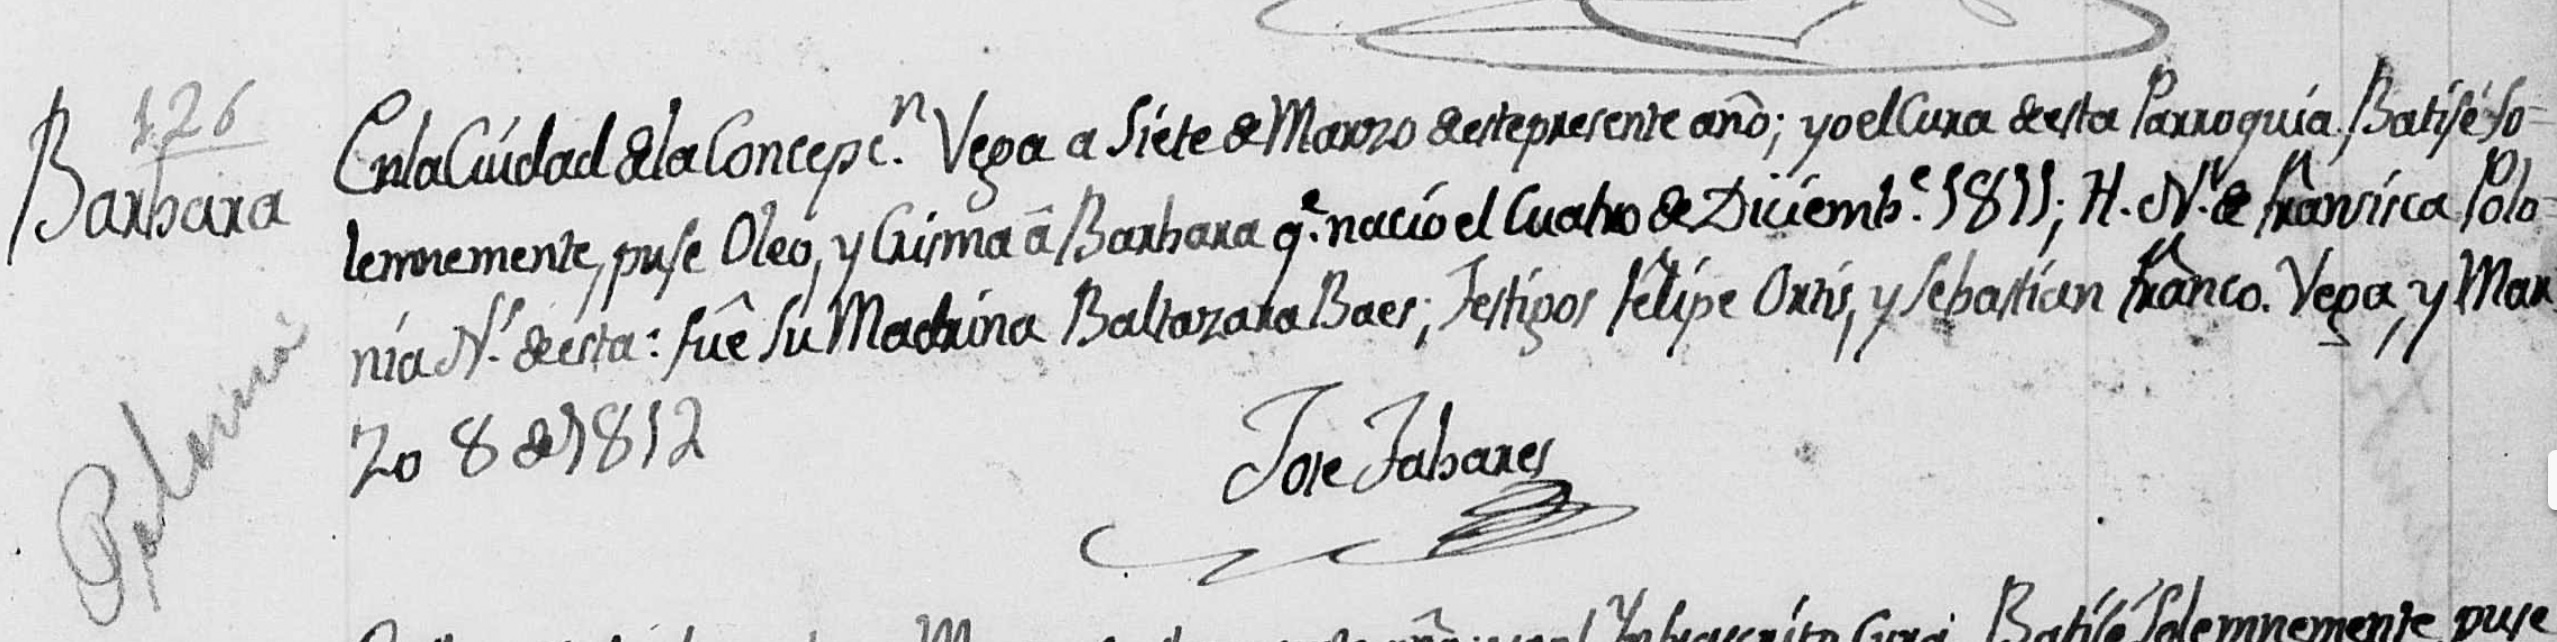 126
Barbara
Polonia
En la Ciudad de la Concepc.n Vega a Siete de Marzo de este presente año; yo el Cura de esta Parroquia Batisé so-
lemnemente, puse Oleo, y Crisma â Barbara q.e nació el Cuatro de Diciemb.e 1811; H. N.l de Fransisca Polo-
nia N.l de esta: fuê su Madrina Baltazara Baes; Testigos Felipe Ortis, y Sebastian Franco. Vega, y Mar
zo 8 de 1812
Jose Tabares
Batisé solemnemente, puse